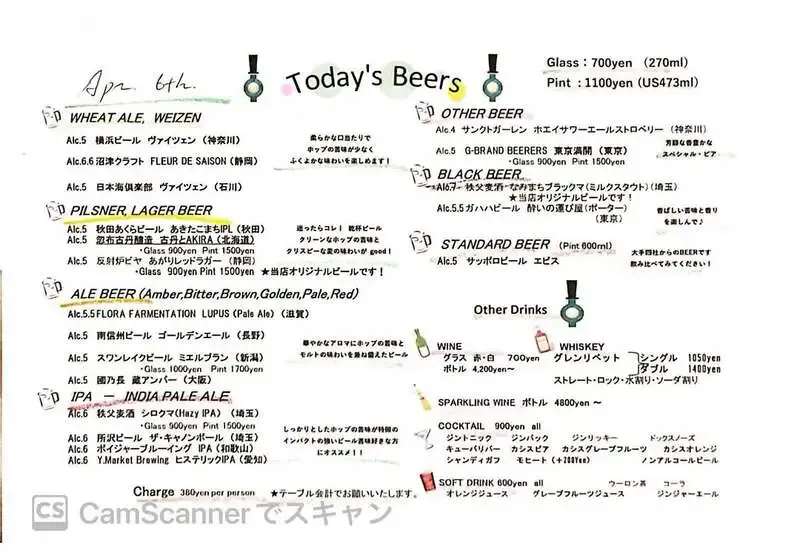 Apr. 6th.
Today's Beers
Glass：700yen （270ml）
Pint ：1100yen（US473ml）
WHEAT ALE, WEIZEN
Alc.5 横浜ビール ヴァイツェン（神奈川）
Alc.6.6 沼津クラフト FLEUR DE SAISON（静岡）
Alc.5 日本海倶楽部 ヴァイツェン（石川）
柔らかな口当たりで
ホップの苦味が少なく
ふくよかな味わいを楽しめます！
PILSNER, LAGER BEER
Alc.5 秋田あくらビール あきたこまちIPL（秋田）
Alc.5 忽布古丹醸造 古丹とAKIRA（北海道）
・Glass 900yen Pint 1500yen
Alc.5 反射炉ビヤ あがりレッドラガー（静岡）
・Glass 900yen Pint 1500yen ★当店オリジナルビールです！
迷ったらコレ！ 乾杯ビール
クリーンなホップの苦味と
クリスピーな麦の味わいが good！
ALE BEER（Amber,Bitter,Brown,Golden,Pale,Red）
Alc.5.5 FLORA FARMENTATION LUPUS（Pale Ale）（滋賀）
Alc.5 南信州ビール ゴールデンエール（長野）
Alc.5 スワンレイクビール ミエルブラン（新潟）
・Glass 1000yen Pint 1700yen
Alc.5 國乃長 蔵アンバー（大阪）
華やかなアロマにホップの苦味と
モルトの味わいを兼ね備えたビール
IPA － INDIA PALE ALE
Alc.6 秩父麦酒 シロクマ（Hazy IPA）（埼玉）
・Glass 900yen Pint 1500yen
Alc.6 所沢ビール ザ・キャノンボール（埼玉）
Alc.6 ボイジャーブルーイング IPA（和歌山）
Alc.6 Y.Market Brewing ヒステリックIPA（愛知）
しっかりとしたホップの苦味が特徴の
インパクトの強いビール苦味好きな方
にオススメ！！
Charge 380yen per person ★テーブル会計でお願いいたします。
OTHER BEER
Alc.4 サンクトガーレン ホエイサワーエールストロベリー（神奈川）
Alc.5 G-BRAND BEERERS 東京満開（東京）
・Glass 900yen Pint 1500yen
芳醇な香豊かな
スペシャル・ビア
BLACK BEER
Alc.7 秩父麦酒 なみまちブラックマ（ミルクスタウト）（埼玉）
★当店オリジナルビールです！
Alc.5.5 ガハハビール 酔いの運び屋（ポーター）
（東京）
香ばしい苦味と香り
を楽しんで♪
STANDARD BEER （Pint 600ml）
Alc.5 サッポロビール エビス
大手四社からのBEERです
飲み比べてみてください！
Other Drinks
WINE
グラス 赤・白 700yen
ボトル 4,200yen～
WHISKEY
グレンリベット シングル 1050yen
ダブル 1400yen
ストレート・ロック・水割り・ソーダ割り
SPARKLING WINE ボトル 4800yen ～
COCKTAIL 900yen all
ジントニック ジンバック ジンリッキー ドックスノーズ
キューバリバー カシスビア カシスグレープフルーツ カシスオレンジ
シャンディガフ モヒート（＋200Yen） ノンアルコールビール
SOFT DRINK 600yen all ウーロン茶 コーラ
オレンジジュース グレープフルーツジュース ジンジャーエール
CS CamScanner でスキャン